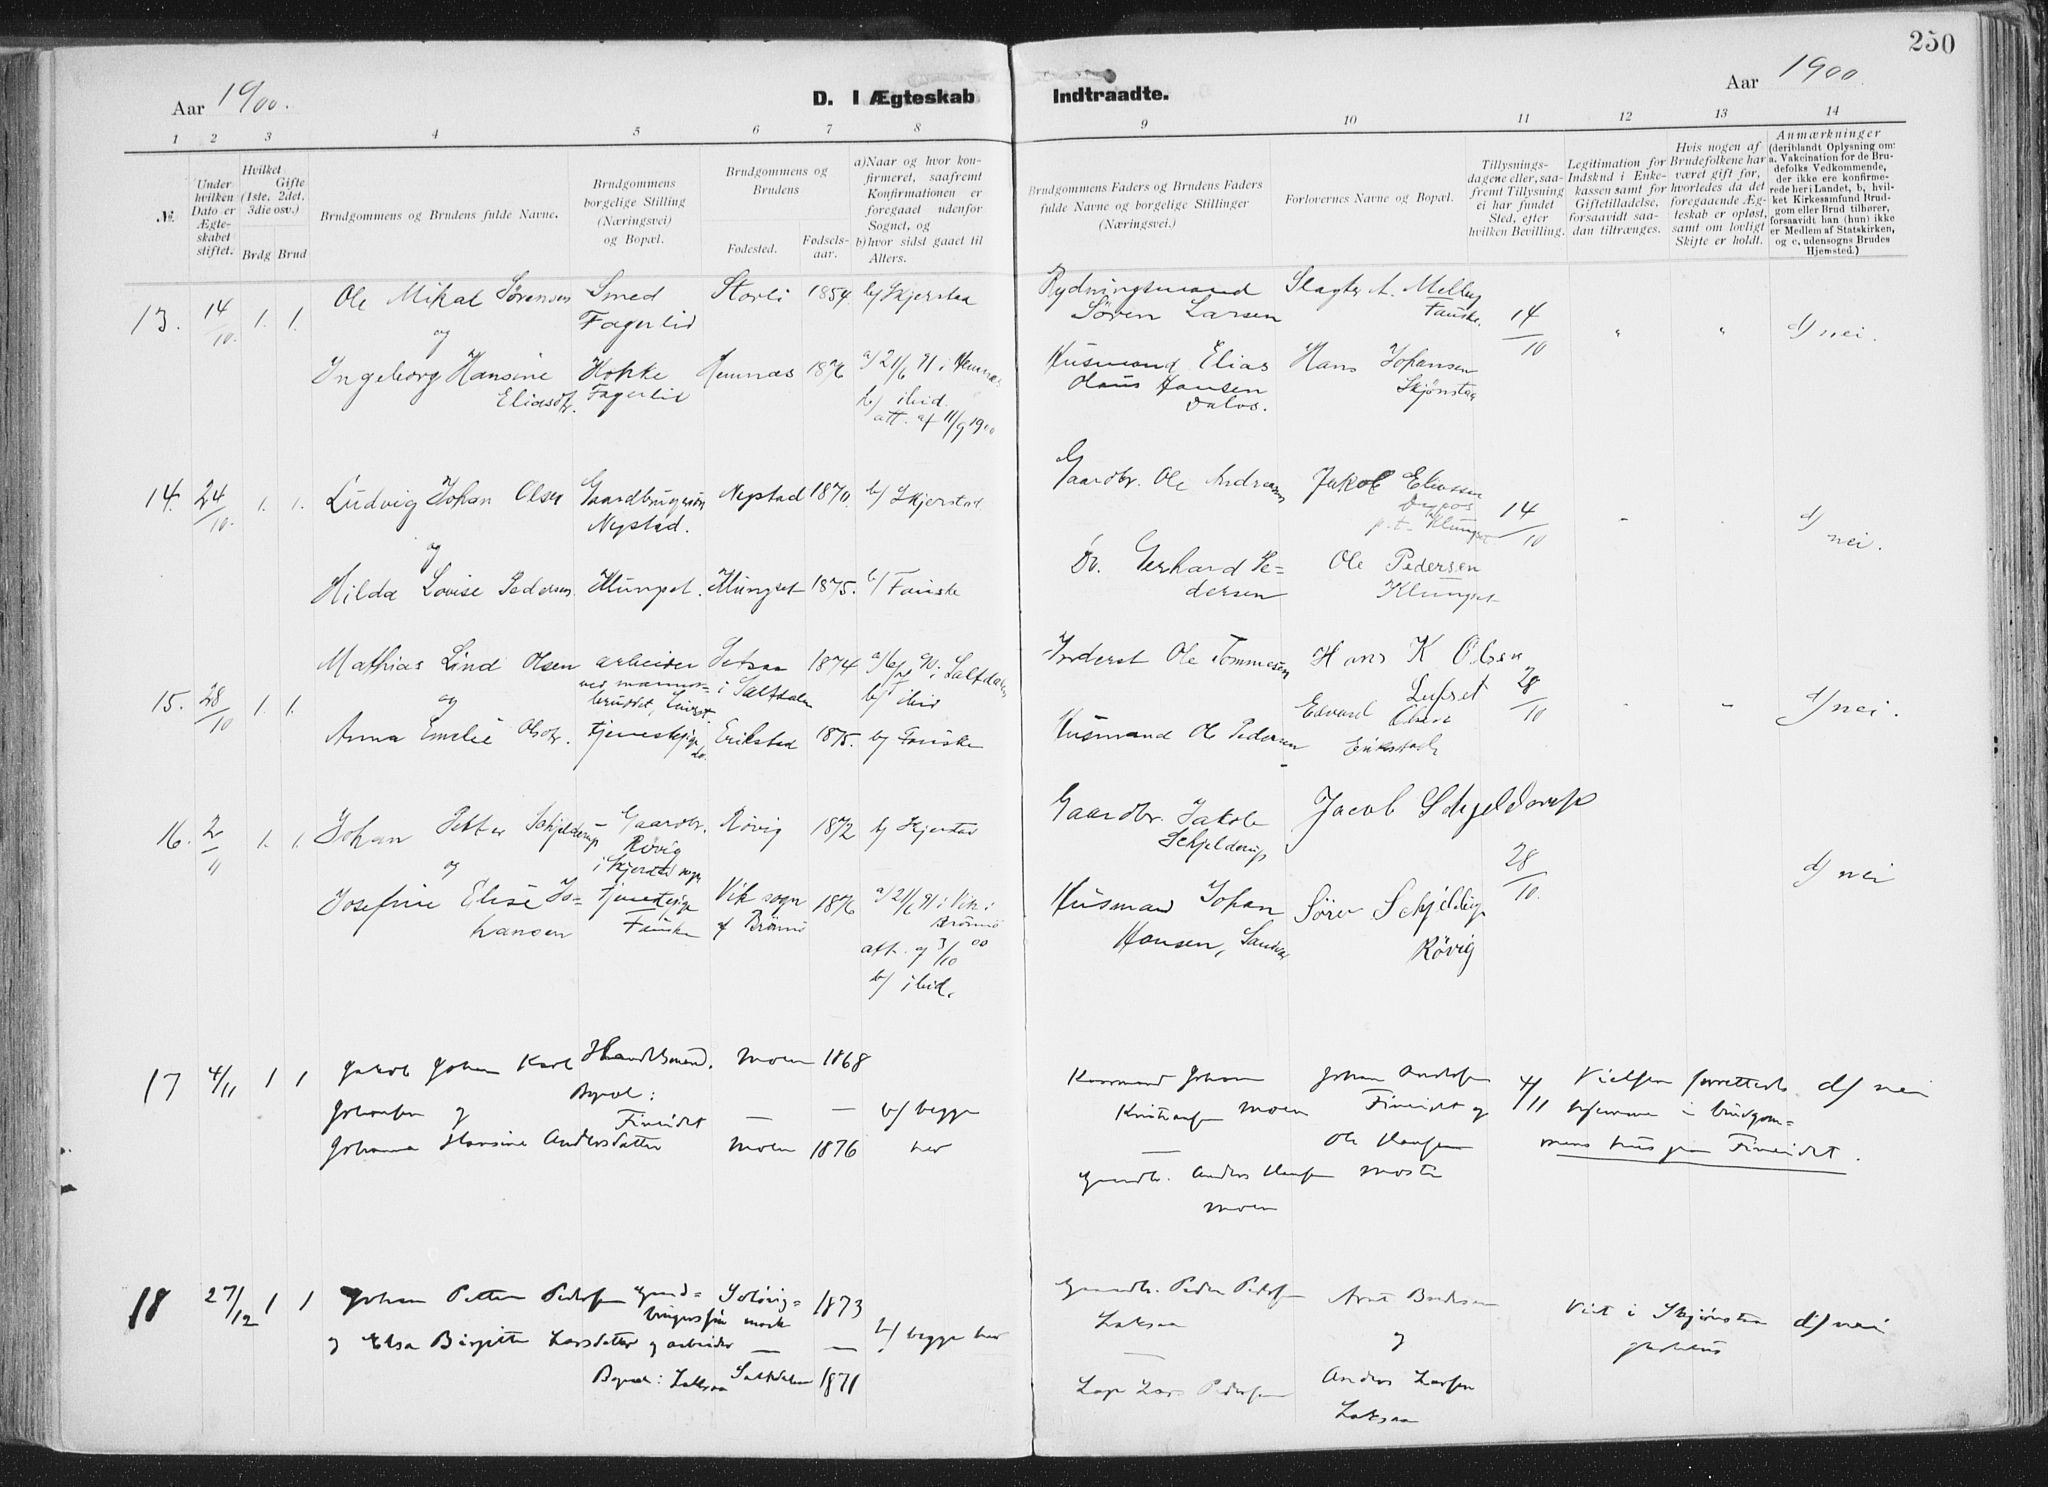 250
Aar 1900.
D. I Ægteskab Indtraadte.
Aar 1900
1 2 3 4 5 6 7 8 9 10 11 12 13 14
№.
Under hvilken Dato er Ægteskabet stiftet.
Hvilket Gifte (1ste, 2det, 3die osv.)
Brdg Brud
Brudgommens og Brudens fulde Navne.
Brudgommens borgelige Stilling (Næringsvei) og Bopæl.
Brudgommens og Brudens
Fødested.
Fødsels-aar.
a) Naar og hvor konfirmeret, saafremt Konfirmationen er foregaaet udenfor Sognet, og
b) hvor sidst gaaet til Alters.
Brudgommens Faders og Brudens Faders fulde Navne og borgelige Stillinger (Næringsvei.)
Forlovernes Navne og Bopæl.
Tillysningsdagene eller, saafremt Tillysning ei har fundet Sted, efter hvilken Bevilling.
Legitimation for Indskud i Enkekassen samt for Giftetilladelse, forsaavidt saadan tiltrænges.
Hvis nogen af Brudefolkene har været gift før, hvorledes da det foregaaende Ægteskab er opløst, samt om lovligt Skifte er holdt.
Anmærkninger (deriblandt Oplysning om: a. Vakcination for de Brudefolks Vedkommende, der ikke ere konfirmerede her i Landet, b, hvilket Kirkesamfund Brudgom eller Brud tilhører, forsaavidt han (hun) ikke er Medlem af Statskirken, og c, udensogns Brudes Hjemsted.)
13. 14/10. 1. 1. Ole Mikal Sørensen Smed Fagerlid Storli 1854. b) Skjerstad Rydningsmand Sören Larsen Slagter A. Melby Fauske. 14/10 " " d) nei.
og
Ingeborg Hansine Eliasdtr. Kokke Fagerlid Hemnæs 1876 a) 21/6 91 i Hemnæs b) ibid. att. af 11/9 1900 Husmand Elias Olaus Hansen Dalos. Hans Johansen Skjønstaa
14. 24/10. 1. 1. Ludvig Johan Olsen Gaardbruger Nystad. Nystad 1870. b) Skjerstad. Gaardbr. Ole Andreassen Jakob Eliassen p.t. Klungset 14/10 d) nei.
og
Hilda Lovise Pedersen Klungset. Klungset 1875. b) Fauske Do. Gerhard Pedersen Ole Pedersen Klungset
15. 28/10 1. 1. Mathias Lind Olsen arbeider ved marmorbruddet, Setsaa i Saltdalen 1874 i Saltdalen b) ibid Inderst Ole Tommesen Hans K Olsen 28/10 d) nei.
og
Anna Emelie Olsdtr. tjenestepige do. Erikstad 1875. b) Fauske Husmand Ole Pedersen Edvard Olsen Erikstad
16. 2/11 1. 1. Johan Petter Schjelderup Gaardbr. Røvig i Skjerstad sogn Røvig 1872 b) Skjerstad Gaardbr. Jakob Schjelderup Jacob Schjelderup 28/10. d) nei
og
Josefine Elise Johansen tjenestepige Fauske Vik sogn af Brønnø 1876 a) 21/6 91 i Vik i Brønnø att. af 3/10 00 b) ibid. Husmand Johan Hansen, Sören Schjelderup Røvig
17 4/11 1 1 Jakob Johan Karl Johansen og Handelsmand. Bopæl: Fineidet Moen 1868 b) begge her Johan Kristiansen Moen Johan Andersen Fineidet og Ole Hansen 4/11 Vielsen forrettedes hjemme i brudgommens hus paa Fineidet. d) nei
Johanna Hansine Andersdatter Moen 1876 Gaardbr. Anders Hansen Moen
18 27/12 1 1 Johan Petter Pedersen Gaardbrugersøn Solvig 1873 b) begge her Gaardbr. Peder Pedersen Laksaa Viet i Skjønstaa d) nei
og Elsa Birgitte Larsdatter og arbeider Bopæl: Laksaa Saltdalen 1871 Lars Pedersen og Anders Larsen Laksaa